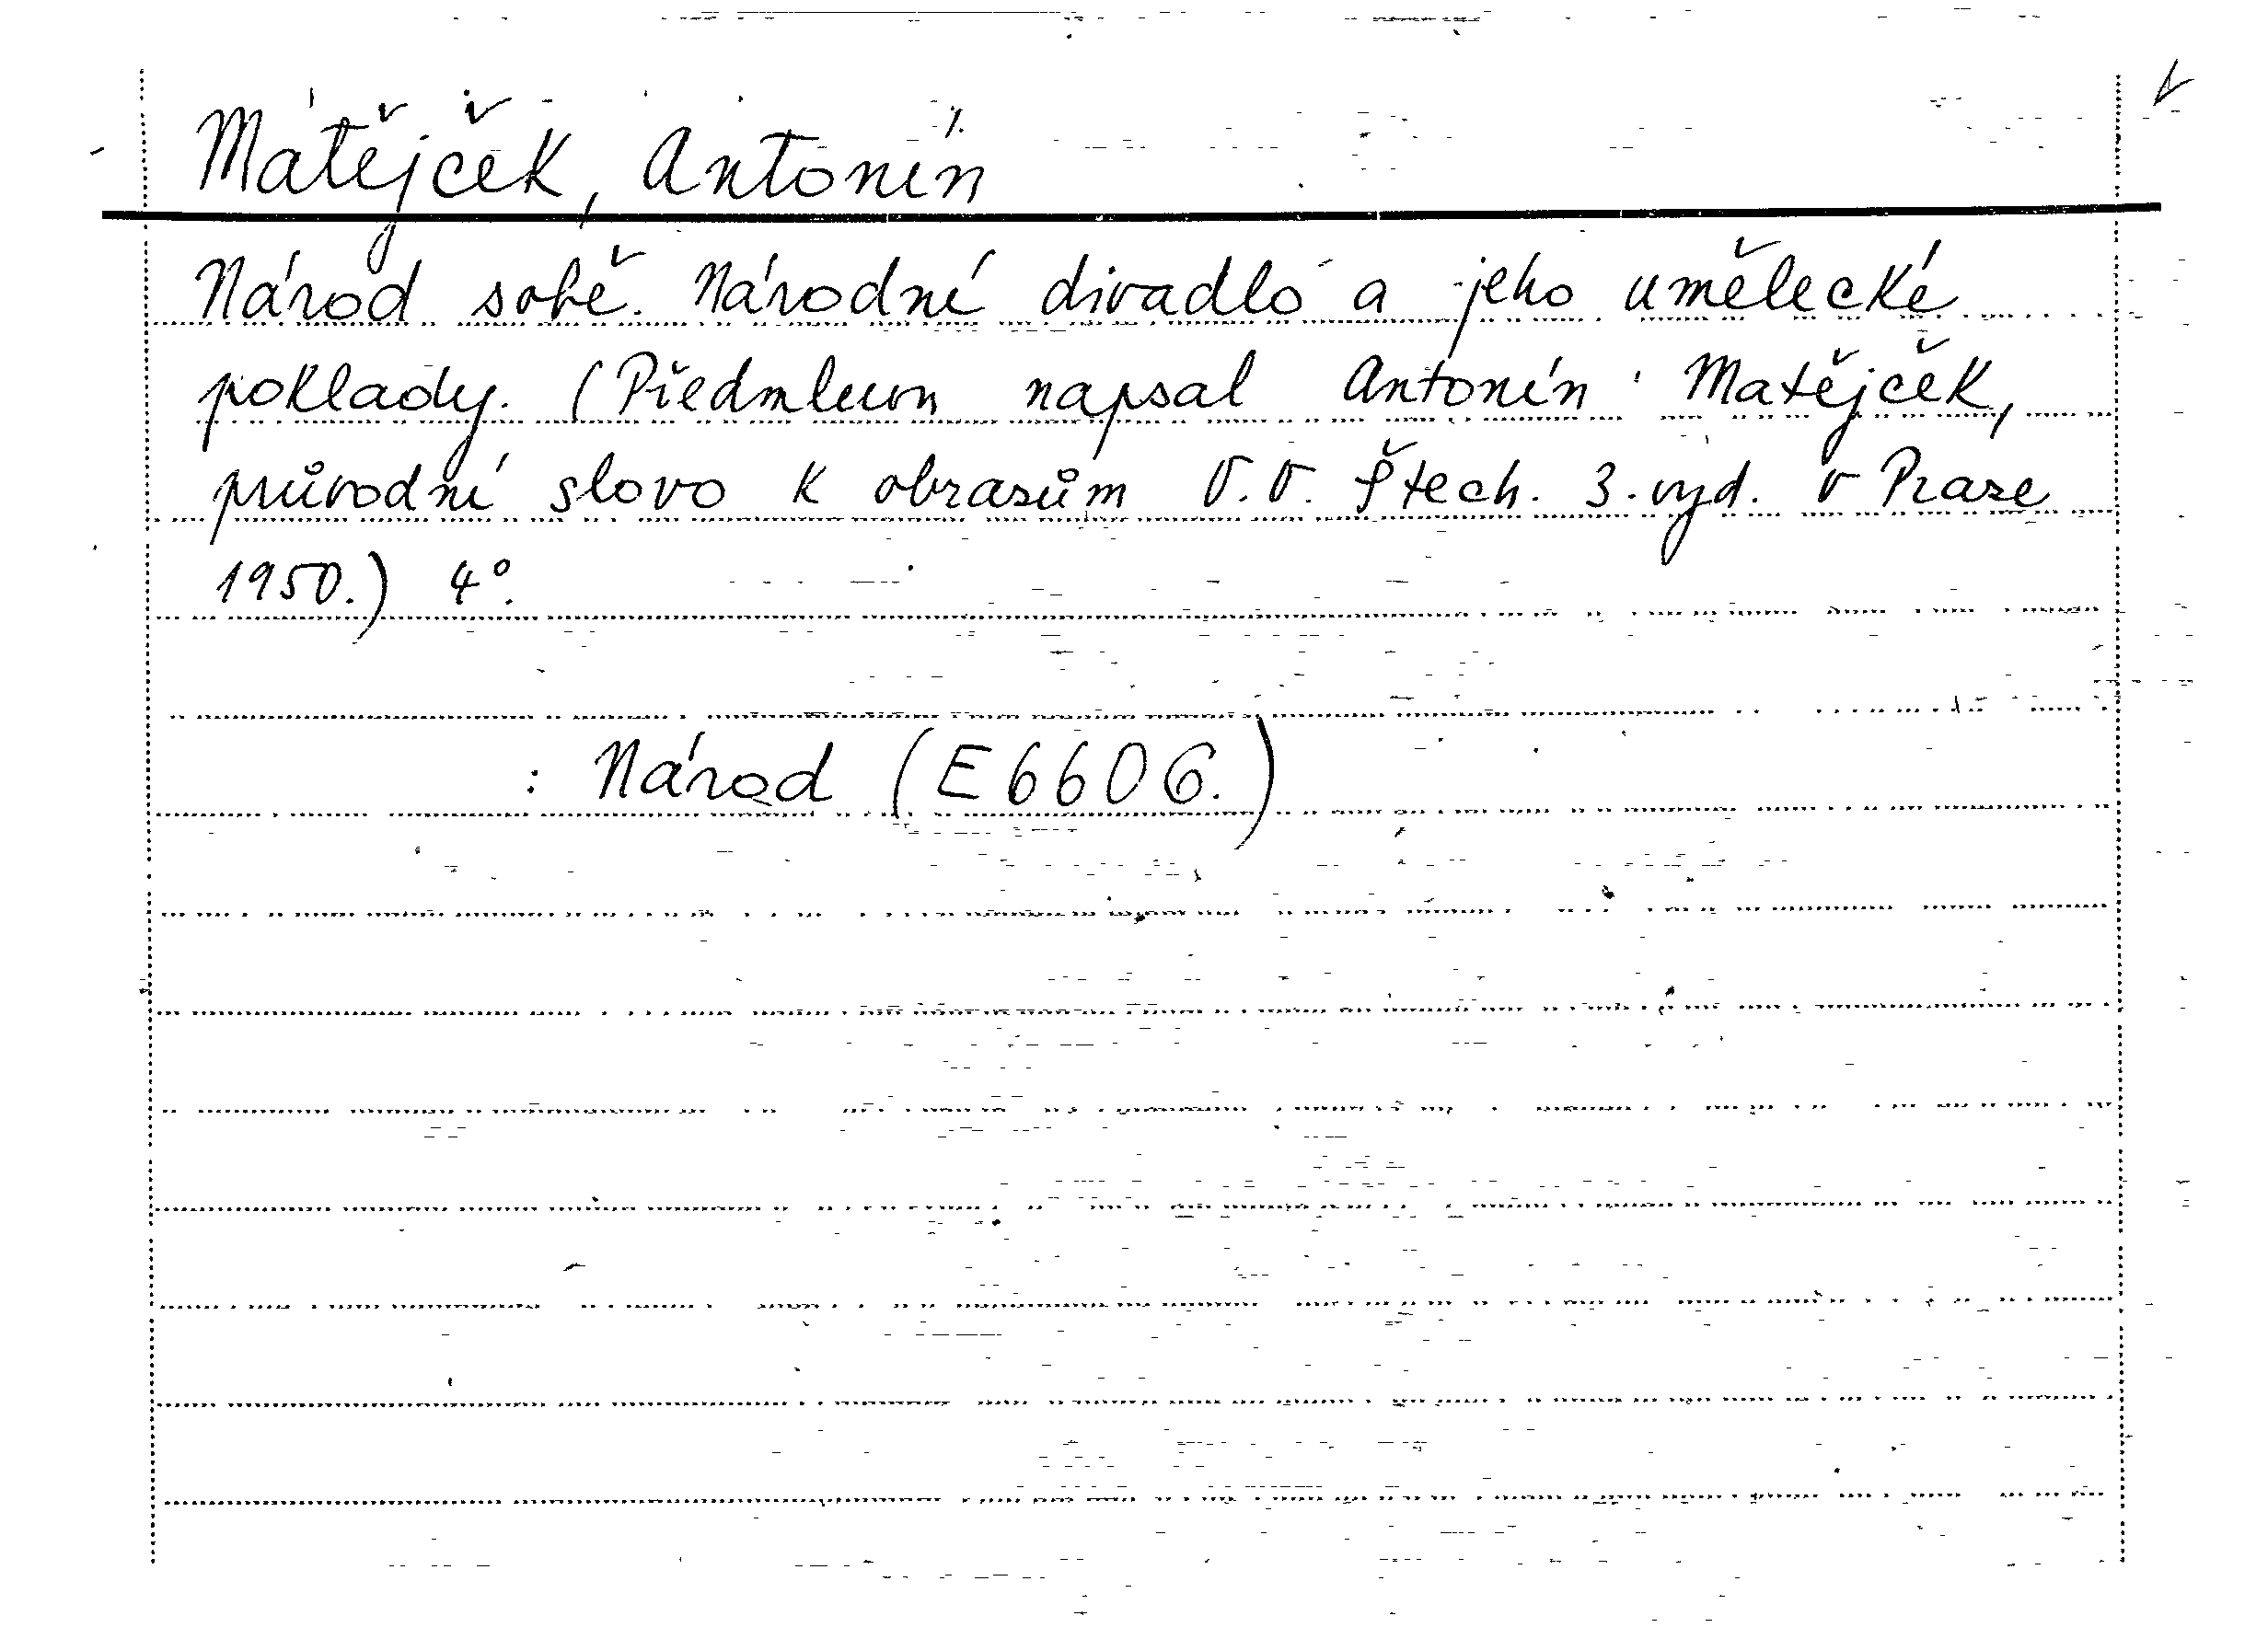 Matějček, Antonín
Národ sobě. Národní divadlo a jeho umělecké
poklady. (Předmluvn napsal Antonín Matějček,
průvodní slovo k obrazům V.V. Štech. 3. vyd. V Praze
1950.) 4°.
: Národ (E 6606.)